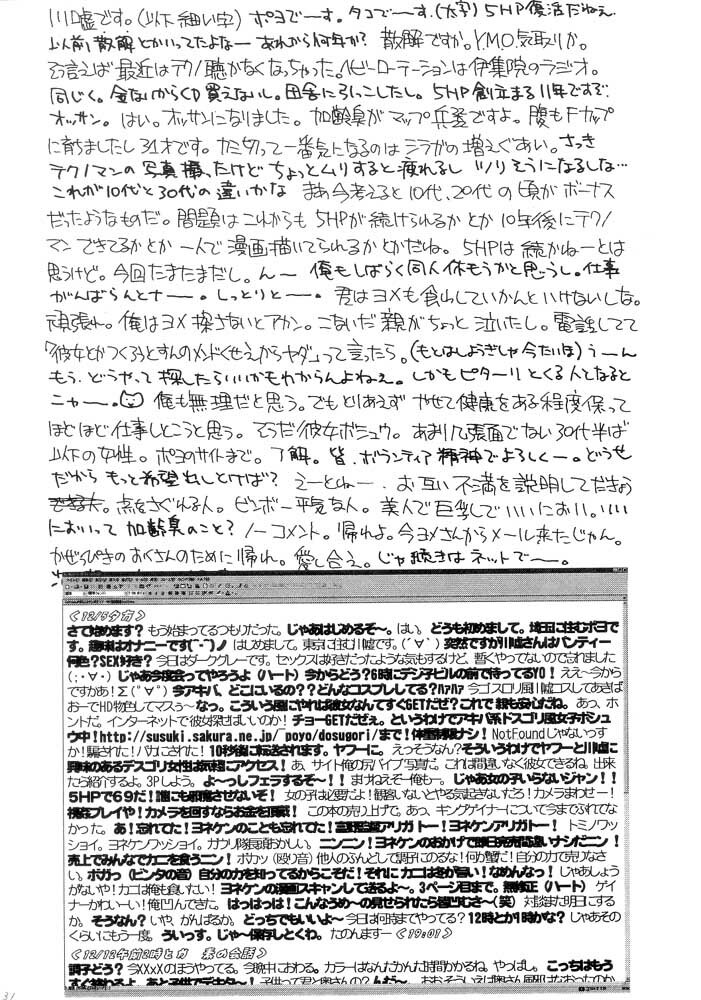 川嘘です。(以下細い字) ポヨでーす。タコでーす.(太字) 5HP復活だねえ
以前散解とかいってたよなー あれから何年か? 散解ですか。YMO気取りか。
そう言えば最近はテクノ聴かなくなっちゃった。ヘビーローテーションは伊集院のラジオ。
同じく。金ないからCD買えないし。田舎に引っこしたし。5HP創立まる11年ですぞ
オッサン。はい。オッサンになりました。加齢臭がマップ兵器ですよ。腹もFカップ
に育ちましたし31才です。カミ切って一番気になるのはシラガの増えぐあい。さっき
テクノマンの写真撮ったけどちょっとムリすると疲れるし ツリそうになるしな…
これが10代と30代の違いかな まあ今考えると10代、20代の頃がボーナス
だったようなものだ。問題はこれからも5HPが続けられるかとか10年後にテクノ
マンできてるかとか 一人で漫画描いてられるかとかだね。5HPは続かねーとは
思うけど。今回たまたまだし。んー 俺もしばらく同人休もうかと思うし。仕事
がんばらんとナー。しっとりとー。君はヨメも食わしていかんといけないしな。
頑張れ。俺はヨメ探さないとアカン。こないだ親がちょっと泣いたし。電話してて
「彼女とかつくろうとすんのメンドくせえからヤダ」って言ったら。(もとはしょうぎしゃ今たいほ) うーん
もう、どうやって探したらいいかもわからんよねえ。しかもピターリとくる人となると
ニャー。俺も無理だと思う。でもとりあえず やせて健康をある程度保って
ほどほど仕事しとこうと思う。そうだ彼女ボシュウ。あまり几張面でない30代半ば
以下の女性。ポヨのサイトまで。了解。皆、ボランティア精神でよろしくー。どうせ
だからもっと希望出しとけば? えーとねー、お互い不満を説明してだきょう
点をさぐれる人。ビンボー平気な人。美人で巨乳でいいにおい。いい
においって加齢臭のこと? ノーコメント。帰れよ。今ヨメさんからメール来たじゃん。
かぜっぴきのおくさんのために帰れ。愛し合え。じゃ続きはネットでー。
<12/5夕方>
さて始めます? もう始まってるつもりだった。じゃあはじめるぞ〜。はい。どうも初めまして。埼玉に住むポヨで
す。趣味はオナニーです(˘-˘)ノ はじめまして。東京に住む川嘘です。(´∀`) 突然ですが川嘘さんはパンティー
何色?SEX好き? 今日はダークグレーです。セックスは好きだったような気もするけど、暫くやってないので忘れました
(;・∀・) じゃあ今度会ってやろうよ(ハート) 今からどう?6時にデジ子ビルの前で待ってるYO! ええ〜今から
ですかあ!Σ(゚∀゚) 今アキバ、どこにいるの??どんなコスプレしてる?ハァハァ 今ゴスロリ風川嘘コスしてあきば
おーでHD物色してマスぅ〜 なっ。こういう風にやれば彼女なんてすぐGETだぜ?これで親も安心だね。あっ、ホ
ントだ。インターネットで彼女探せばいいのか! チョーGETだぜぇ。というわけでアキバ系ドスゴリ風女子ボシュ
ウ中!http://susuki.sakura.ne.jp/~poyo/dosugori/まで!体重制限ナシ! NotFoundじゃないっす
か!騙された!バカにされた! 10秒後に転送されます。ヤフーに。えっそうなん? そういうわけでヤフーと川嘘に
興味のあるデスゴリ女性は気軽にアクセス! あ、サイト俺の尻バイブ写真だ。これは間違いなく彼女できるね。出来
たら紹介するよ。3Pしよう。よ〜っしフェラするぞ〜!! まずねえぞー俺もー。じゃあ女の子いらないジャン!!
5HPで69だ!誰にも邪魔させないぞ! 女の子は必要だよ!観客いないとやる気起きないだろ!カメラまわせー!
視姦プレイや!カメラを回すならお金を頂戴! この本の売り上げで。あっ、キングゲイナーについて今まで触れてな
かった。あ!忘れてた!ヨネケンのことも忘れてた!富野監督アリガトー!ヨネケンアリガトー! トミノワッ
ショイ。ヨネケンワッショイ。カナリ隊長助かしい。ニンニン!ヨネケンのおかげで即日完売間違いナシだニン!
売上でみんなでカニを食うニン! ボカッ(殴り音)他人のふんどしで調子にのるな!何が蟹だ!自分の力で売りなさ
い。ボガっ(ビンタの音) 自分の力を知ってるからこそだ!それにカニは冬が旨い!なめんなっ! じゃあしょう
がないや!カニは俺も食いたい! ヨネケンの漫画スキャンして送るよ〜。3ページ目まで。無修正(ハート) ゲイ
ナーかわいーい!俺凹んできた。はっはっは!こんなうめ〜の見せられたら皆凹むさ〜(笑) 対談また明日にする
か。そうなん? いや、がんばるか。どっちでもいいよ〜 今日は何時までやってる? 12時とか1時かな? じゃあその
くらいにもう一度。ういっす。じゃ〜保存しとくわ。たのんますー <19:01>
<12/12午前2時とか
調子どう? 今XXXのほうやってる。今晩中におわる。カラーはなんだかんだ時間かかるね、やっぱし。こっちはもう
31